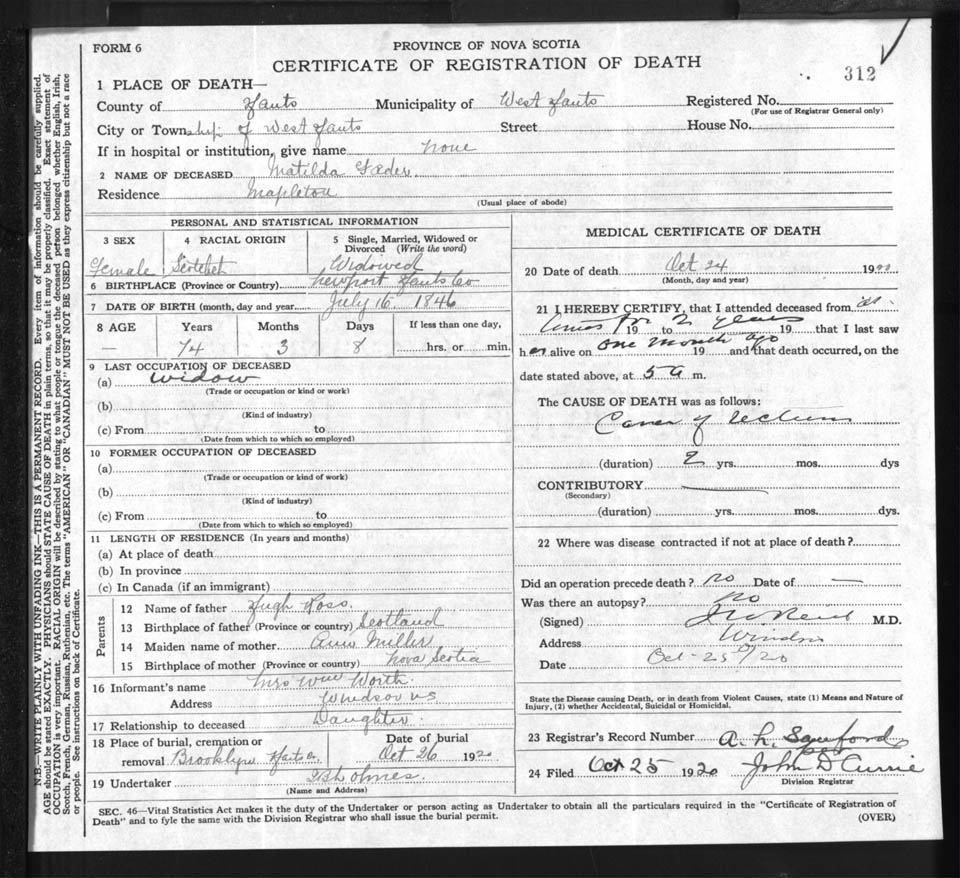 FORM 6
PROVINCE OF NOVA SCOTIA
CERTIFICATE OF REGISTRATION OF DEATH
312
1 PLACE OF DEATH—
County of Hants Municipality of West Hants Registered No.
(For use of Registrar General only)
City or Township of West Hants Street House No.
If in hospital or institution, give name none
2 NAME OF DECEASED Matilda Fader
Residence Mapleton
(Usual place of abode)
PERSONAL AND STATISTICAL INFORMATION
3 SEX 4 RACIAL ORIGIN 5 Single, Married, Widowed or Divorced (Write the word)
Female Scotch Widowed
6 BIRTHPLACE (Province or Country) Newport Hants Co
7 DATE OF BIRTH (month, day and year) July 16 1846
8 AGE Years Months Days If less than one day,
— 74 3 8 hrs. or min.
9 LAST OCCUPATION OF DECEASED
(a) widow
(Trade or occupation or kind or work)
(b)
(Kind of industry)
(c) From to
(Date from which to which so employed)
10 FORMER OCCUPATION OF DECEASED
(a)
(Trade or occupation or kind of work)
(b)
(Kind of industry)
(c) From to
(Date from which to which so employed)
11 LENGTH OF RESIDENCE (In years and months)
(a) At place of death
(b) In province
(c) In Canada (if an immigrant)
Parents
12 Name of father Hugh Ross
13 Birthplace of father (Province or country) Scotland
14 Maiden name of mother Ann Miller
15 Birthplace of mother (Province or country) Nova Scotia
16 Informant's name Mrs Wm Worth
Address Windsor NS
17 Relationship to deceased Daughter
18 Place of burial, cremation or removal Brooklyn Hants Co Date of burial Oct 26 1920
19 Undertaker Holmes
(Name and Address)
MEDICAL CERTIFICATE OF DEATH
20 Date of death Oct 24 1920
(Month, day and year)
21 I HEREBY CERTIFY, that I attended deceased from at
times for 19 to 2 years 19 that I last saw
her alive on one month ago 19 and that death occurred, on the
date stated above, at 5 a m.
The CAUSE OF DEATH was as follows:
Cancer of rectum
(duration) 2 yrs. mos. dys
CONTRIBUTORY —
(Secondary)
(duration) yrs. mos. dys.
22 Where was disease contracted if not at place of death?
Did an operation precede death? no Date of —
Was there an autopsy? no
(Signed) M.D.
Address Windsor
Date Oct-25/20
State the Disease causing Death, or in death from Violent Causes, state (1) Means and Nature of
Injury, (2) whether Accidental, Suicidal or Homicidal.
23 Registrar's Record Number A. L. Sanford
per
24 Filed Oct 25 1920 John D Currie
Division Registrar
SEC. 46—Vital Statistics Act makes it the duty of the Undertaker or person acting as Undertaker to obtain all the particulars required in the "Certificate of Registration of
Death" and to fyle the same with the Division Registrar who shall issue the burial permit.
(OVER)
N.B.—WRITE PLAINLY WITH UNFADING INK—THIS IS A PERMANENT RECORD. Every item of information should be carefully supplied.
AGE should be stated EXACTLY. PHYSICIANS should STATE CAUSE OF DEATH in plain terms, so that it may be properly classified. Exact statement of
OCCUPATION is very important. RACIAL ORIGIN will be described by stating to what people or tongue the deceased person belonged whether English, Irish,
Scotch, French, German, Russian, Ruthenian, etc. The terms "AMERICAN" OR "CANADIAN" MUST NOT BE USED as they express citizenship but not a race
or people. See instructions on back of Certificate.